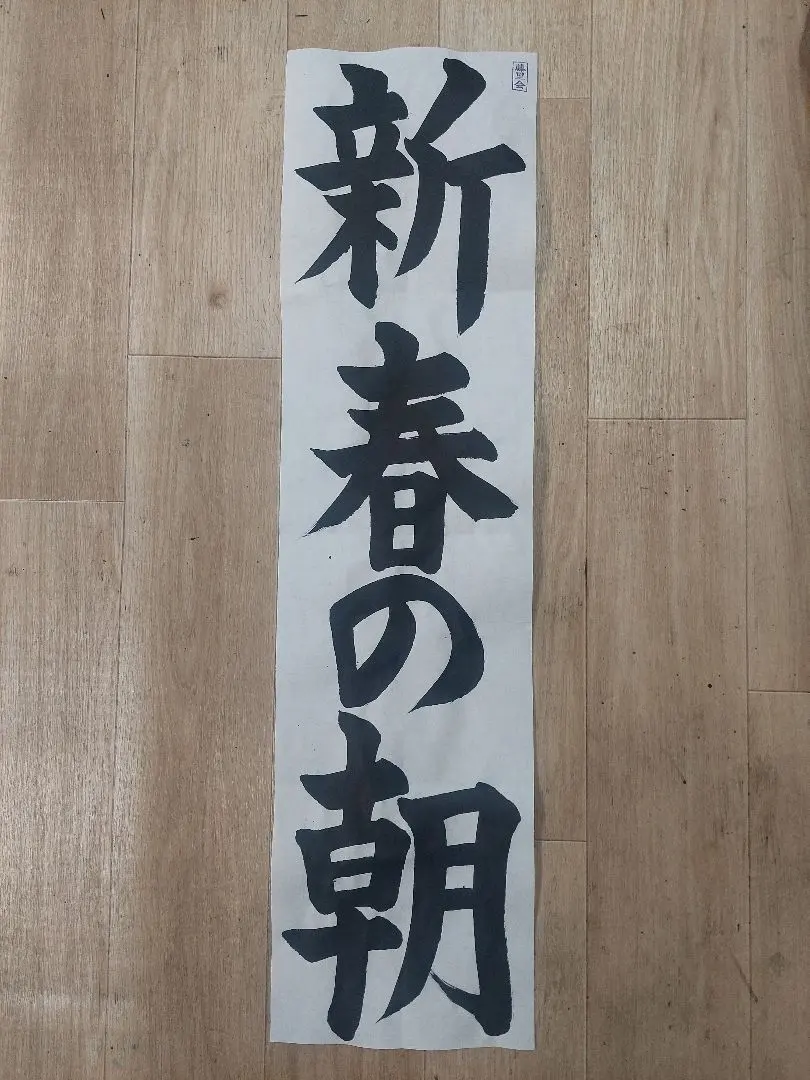 新春の朝